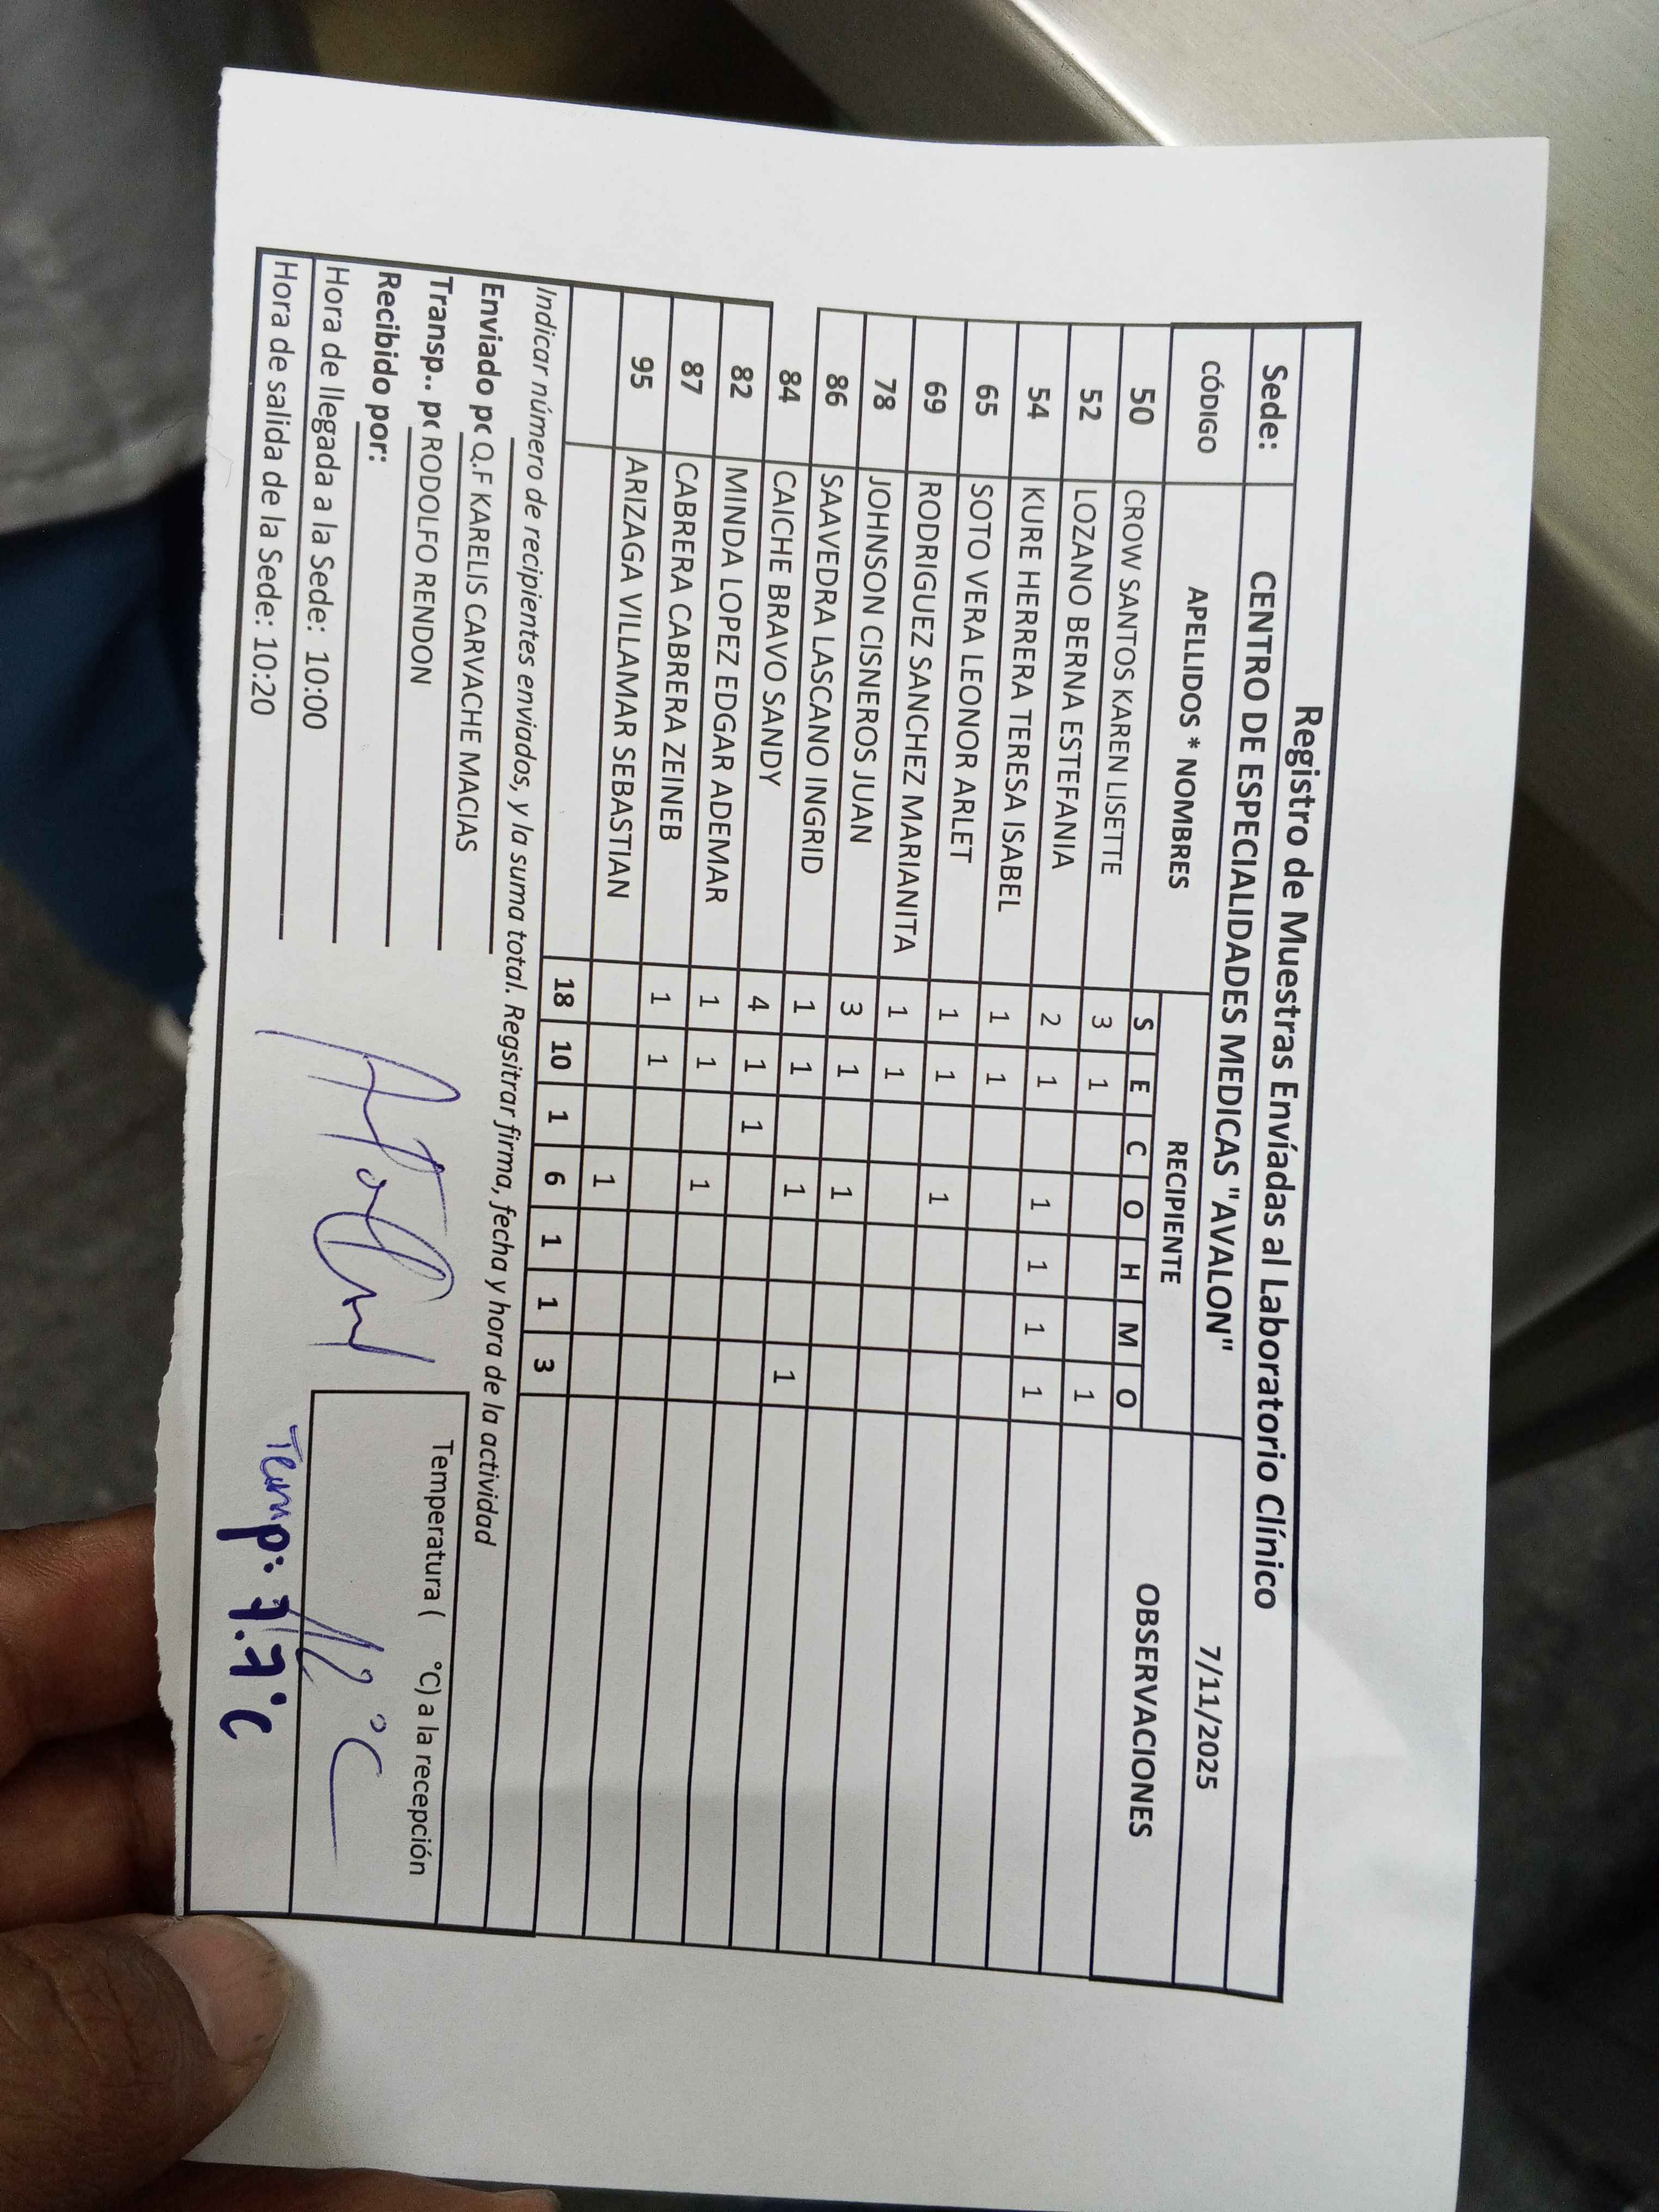 Registro de Muestras Envíadas al Laboratorio Clínico
Sede: CENTRO DE ESPECIALIDADES MEDICAS "AVALON" 7/11/2025
CÓDIGO APELLIDOS * NOMBRES RECIPIENTE OBSERVACIONES
S E C O H M O
50 CROW SANTOS KAREN LISETTE 3 1 1
52 LOZANO BERNA ESTEFANIA 2 1 1 1 1 1
54 KURE HERRERA TERESA ISABEL 1 1
65 SOTO VERA LEONOR ARLET 1 1 1
69 RODRIGUEZ SANCHEZ MARIANITA 1 1
78 JOHNSON CISNEROS JUAN 3 1 1
86 SAAVEDRA LASCANO INGRID 1 1 1 1
84 CAICHE BRAVO SANDY 4 1 1
82 MINDA LOPEZ EDGAR ADEMAR 1 1 1
87 CABRERA CABRERA ZEINEB 1 1
95 ARIZAGA VILLAMAR SEBASTIAN 1
18 10 1 6 1 1 3
Indicar número de recipientes enviados, y la suma total. Regsitrar firma, fecha y hora de la actividad
Enviado po Q.F KARELIS CARVACHE MACIAS
Transp.. po RODOLFO RENDON
Temperatura ( °C) a la recepción
Recibido por:
°C
Hora de llegada a la Sede: 10:00
Hora de salida de la Sede: 10:20
Temp: 7.7°C